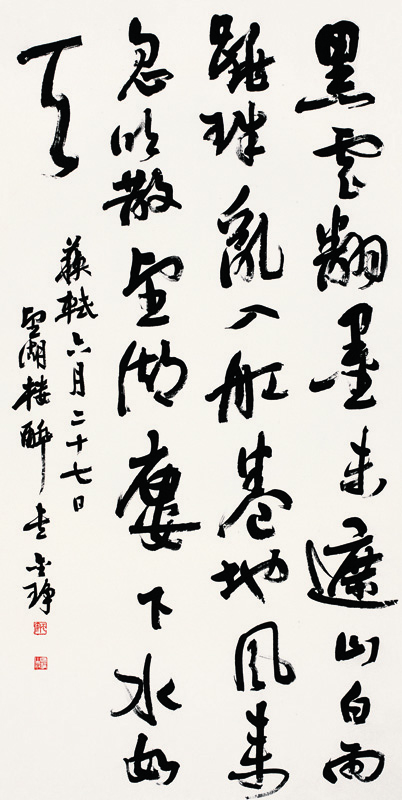 黑雲翻墨未遮山白雨
跳珠亂入船卷地風來
忽吹散望湖樓下水如
天
蘇軾六月二十七日
望湖楼醉書